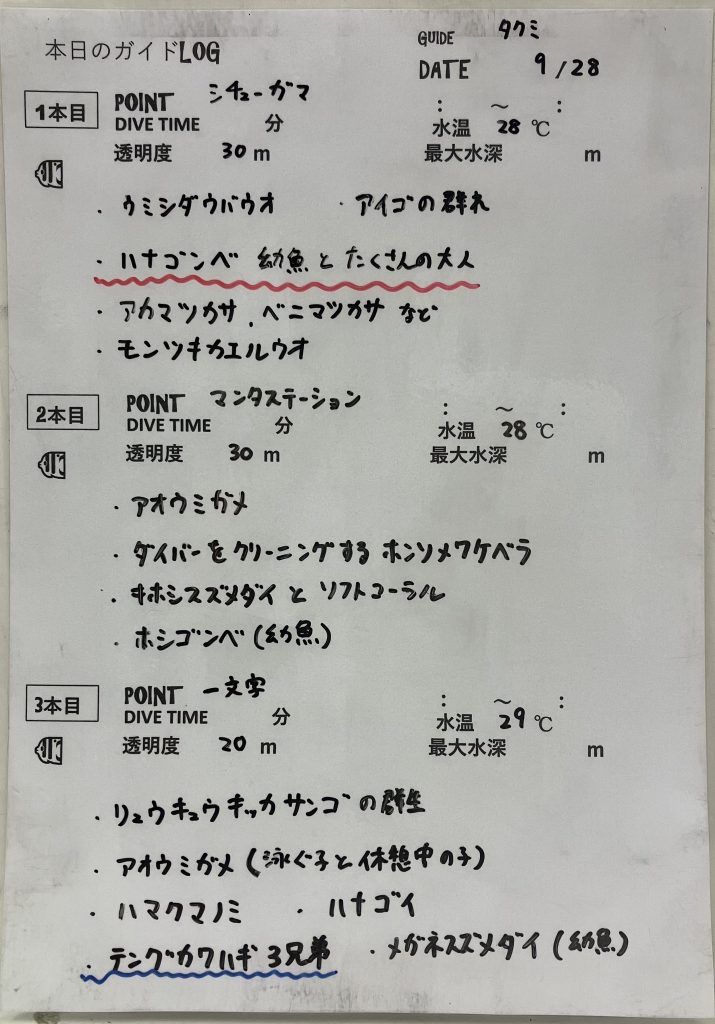 本日のガイドLOG
GUIDE タクミ
DATE 9/28
1本目 POINT シチューガマ : ～ :
DIVE TIME 分 水温 28 ℃
透明度 30 m 最大水深 m
・ウミシダウバウオ ・アイゴの群れ
・ハナゴンベ 幼魚と たくさんの大人
・アカマツカサ、ベニマツカサ など
・モンツキカエルウオ
2本目 POINT マンタステーション : ～ :
DIVE TIME 分 水温 28 ℃
透明度 30 m 最大水深 m
・アオウミガメ
・ダイバーをクリーニングする ホンソメワケベラ
・キホシスズメダイ と ソフトコーラル
・ホシゴンベ(幼魚)
3本目 POINT 一文字 : ～ :
DIVE TIME 分 水温 29 ℃
透明度 20 m 最大水深 m
・リュウキュウキッカサンゴの群生
・アオウミガメ(泳ぐ子と休憩中の子)
・ハマクマノミ ・ハナゴイ
・テングカワハギ 3兄弟 ・メガネスズメダイ(幼魚)